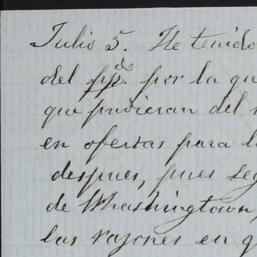 Julio 5. He tenido
del ppdo. por la qu
que pudieran del
en ofertas para l
despues, pues seg
de Whashingtown,
las razones en q